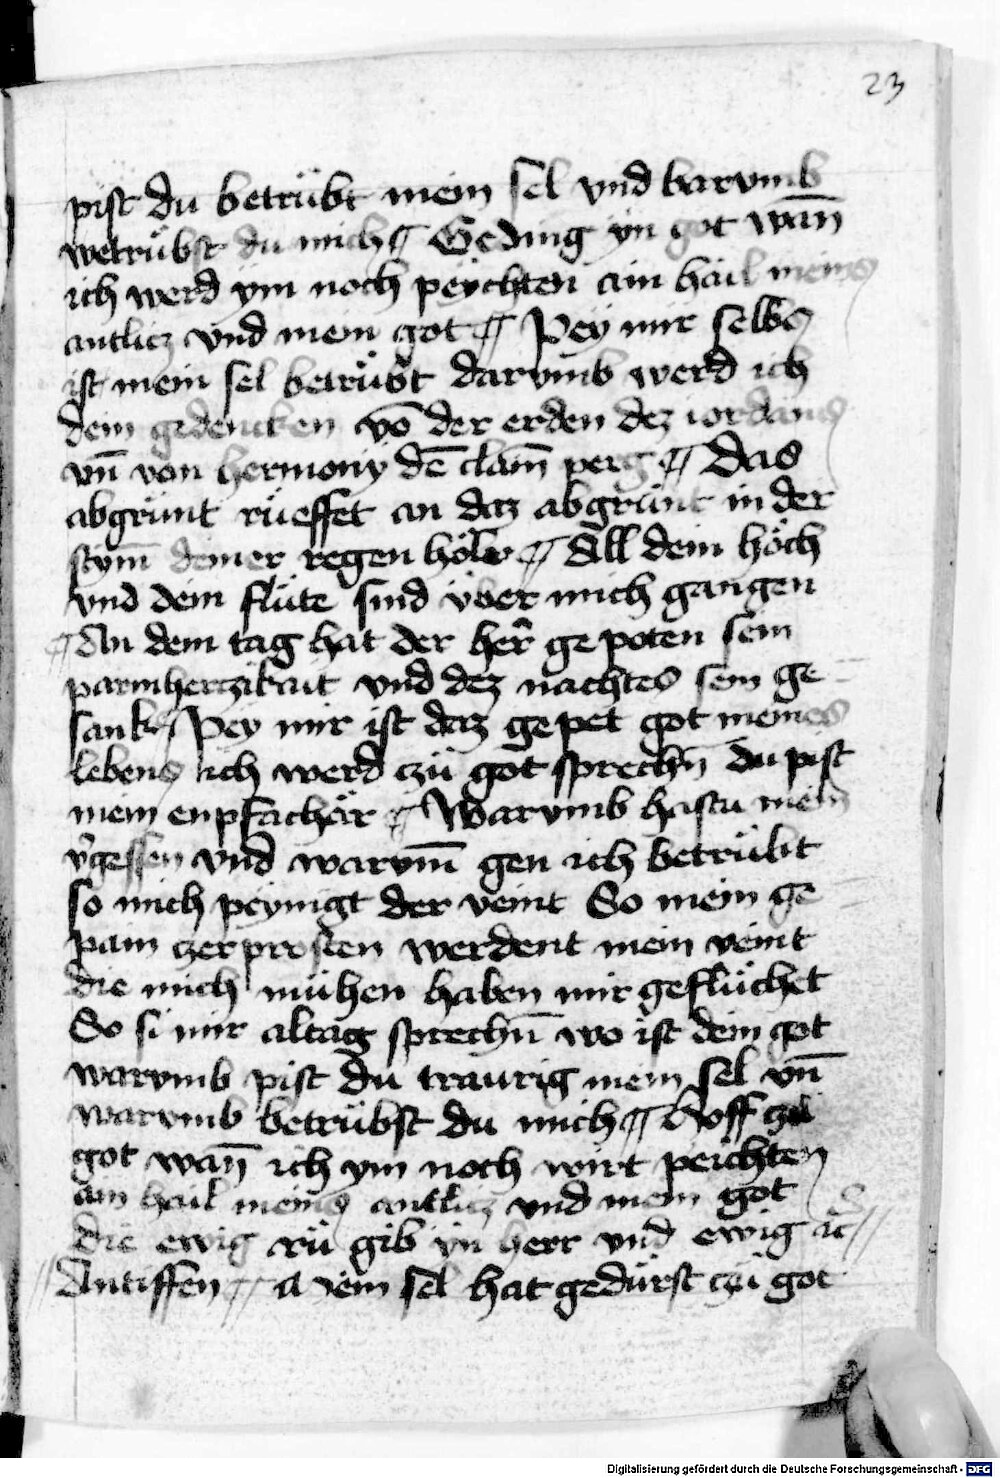 23
pist du betrübt mein sel vnd barvmb
wetrübst du mich ¶ Geding yn got wan̄
ich werd ym noch peychten ain hail meins
antlicz vnd mein got ¶ Pey mir selbs
ist mein sel betrübt darvmb werd ich
dein gedencken vō der erden dez iordans
vn̄ von hermoniy dē clain̄ perg ¶ Das
abgrünt rüeffet an daz abgrünt in der
stym̄ deiner regen hölr ¶ All dein höch
vnd dein flüte sind über mich gangen
¶ An dem tag hat der her̄ ge poten sein
parmherczikait vnd dez nachtes sein ge
sank ¶ Pey mir ist daz ge pet got meines
lebens ich werd czü got sprechn̄ du pist
mein enpfachär ¶ Warvmb hastu mein
v̄gessen vnd warvm̄ gen ich betrübt
so mich peynigt der veint So mein ge
pain czerprosten werdent mein veint
die mich mühen haben mir geflüchet
So si mir altag sprechn̄ wo ist dein got
warvmb pist du traurig mein sel vn̄
warvmb betrübst du mich ¶ Hoff czü
got wan̄ ich ym noch wirt peichten
ain hail meins antlicz vnd mein got
die ewig rü gib yn herr vnd ewig ic
Antiffen ¶ Mein sel hat gedürst czü got
Digitalisierung gefördert durch die Deutsche Forschungsgemeinschaft - DFG